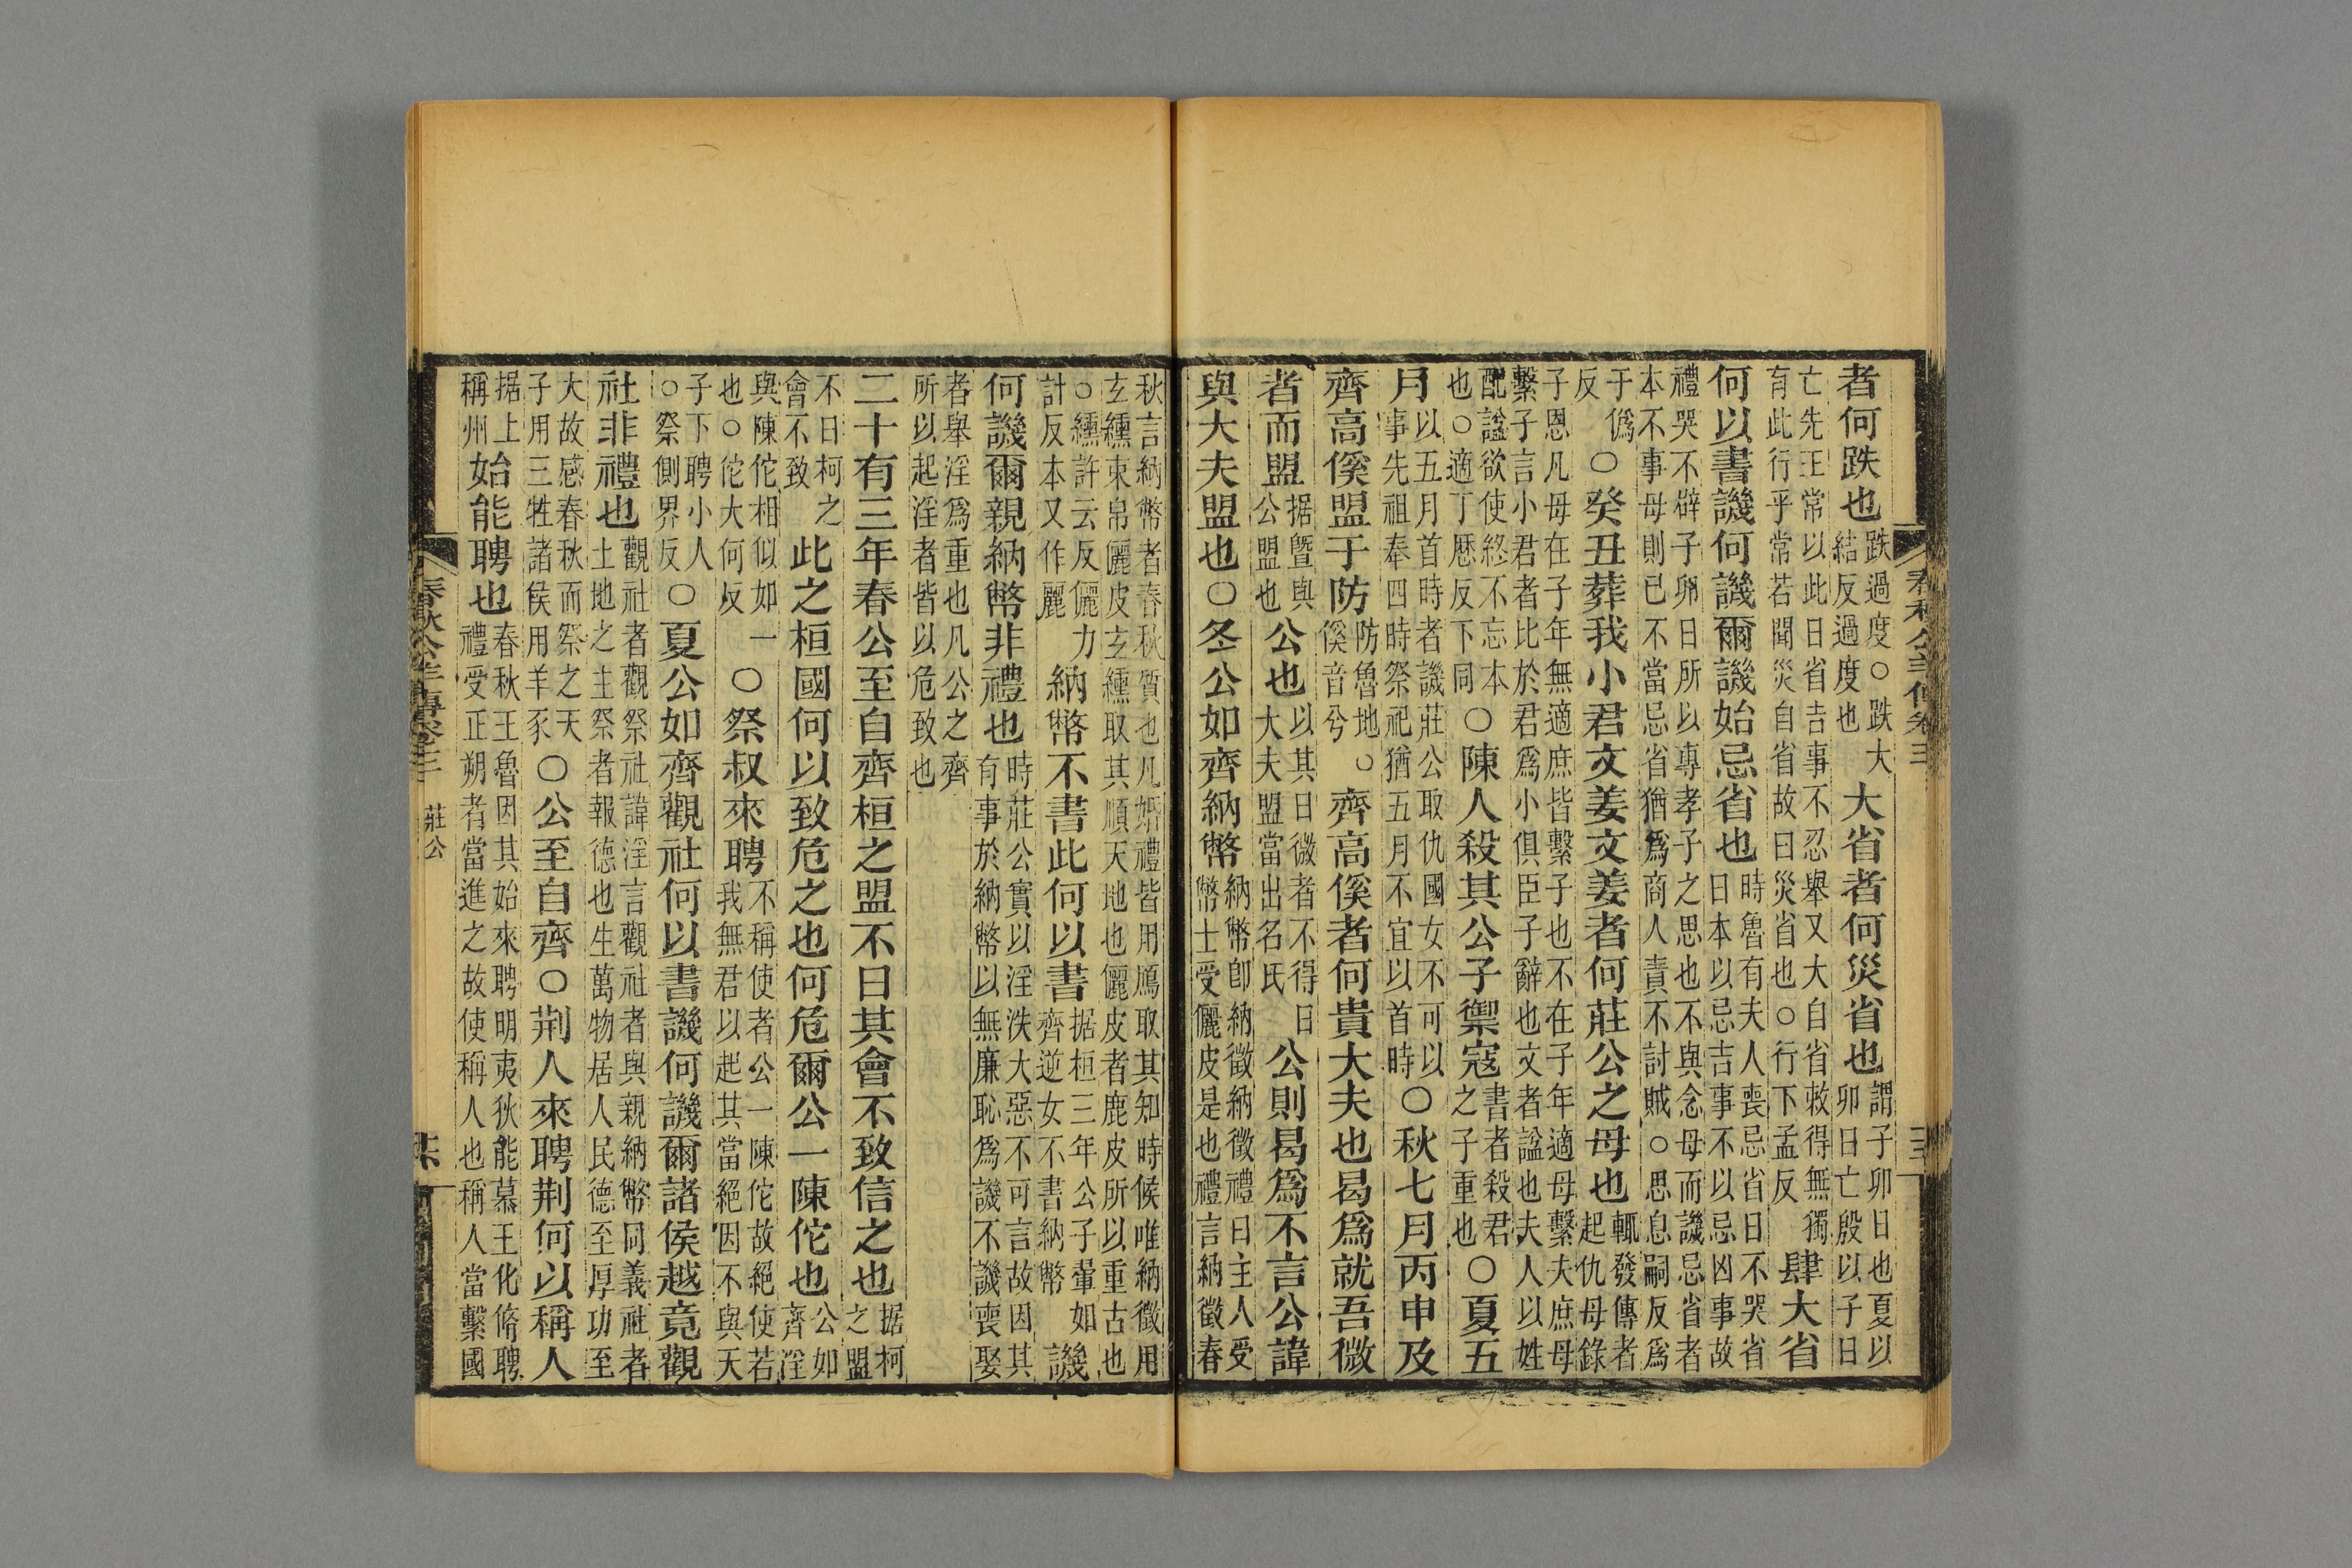 者何跌也跌過度○跌大結反過度也大省者何災省也謂子卯日也夏以卯日亡殷以子日
亡先王常以此日省吉事不忍舉又大自省敕得無獨有此行乎常若聞災自省故曰災省也○行下孟反肆大省
何以書譏何譏爾譏始忌省也時魯有夫人喪忌省日不哭省日本以忌吉事不以忌凶事故
禮哭不辟子卯日所以專孝子之思也不與念母而譏忌省者本不事母則已不當忌省猶爲商人責不討賊○思息嗣反爲
于僞反○癸丑葬我小君文姜文姜者何莊公之母也輒發傳者起仇母錄
子恩凡母在子年無適庶皆繫子也不在子年適母繫夫庶母繫子言小君者比於君爲小俱臣子辭也文者諡也夫人以姓
配諡欲使終不忘本也○適丁歷反下同○陳人殺其公子禦寇書者殺君之子重也○夏五
月以五月首時者譏莊公取仇國女不可以事先祖奉四時祭祀猶五月不宜以首時○秋七月丙申及
齊高傒盟于防防魯地○傒音兮齊高傒者何貴大夫也曷爲就吾微
者而盟据曁與公盟也公也以其日微者不得日大夫盟當出名氏公則曷爲不言公諱
與大夫盟也○冬公如齊納幣納幣卽納徵納徵禮曰主人受幣士受儷皮是也禮言納徵春
秋言納幣者春秋質也凡婚禮皆用鴈取其知時候唯納徵用玄纁束帛儷皮玄纁取其順天地也儷皮者鹿皮所以重古也
○纁許云反儷力計反本又作麗納幣不書此何以書据桓三年公子翬如齊逆女不書納幣譏
何譏爾親納幣非禮也時莊公實以淫泆大惡不可言故因其有事於納幣以無廉恥爲譏不譏喪娶
者舉淫爲重也凡公之齊所以起淫者皆以危致也
二十有三年春公至自齊桓之盟不日其會不致信之也据柯之盟
不日柯之會不致此之桓國何以致危之也何危爾公一陳佗也公如齊淫
與陳佗相似如一也○佗大何反○祭叔來聘不稱使者公一陳佗故絕使若我無君以起其當絕因不與天
子下聘小人○祭側界反○夏公如齊觀社何以書譏何譏爾諸侯越竟觀
社非禮也觀社者觀祭社諱淫言觀社者與親納幣同義社者土地之主祭者報德也生萬物居人民德至厚功至
大故感春秋而祭之天子用三牲諸侯用羊豕○公至自齊○荆人來聘荆何以稱人
据上稱州始能聘也春秋王魯因其始來聘明夷狄能慕王化脩聘禮受正朔者當進之故使稱人也稱人當繫國
春秋公羊傳卷三 莊公